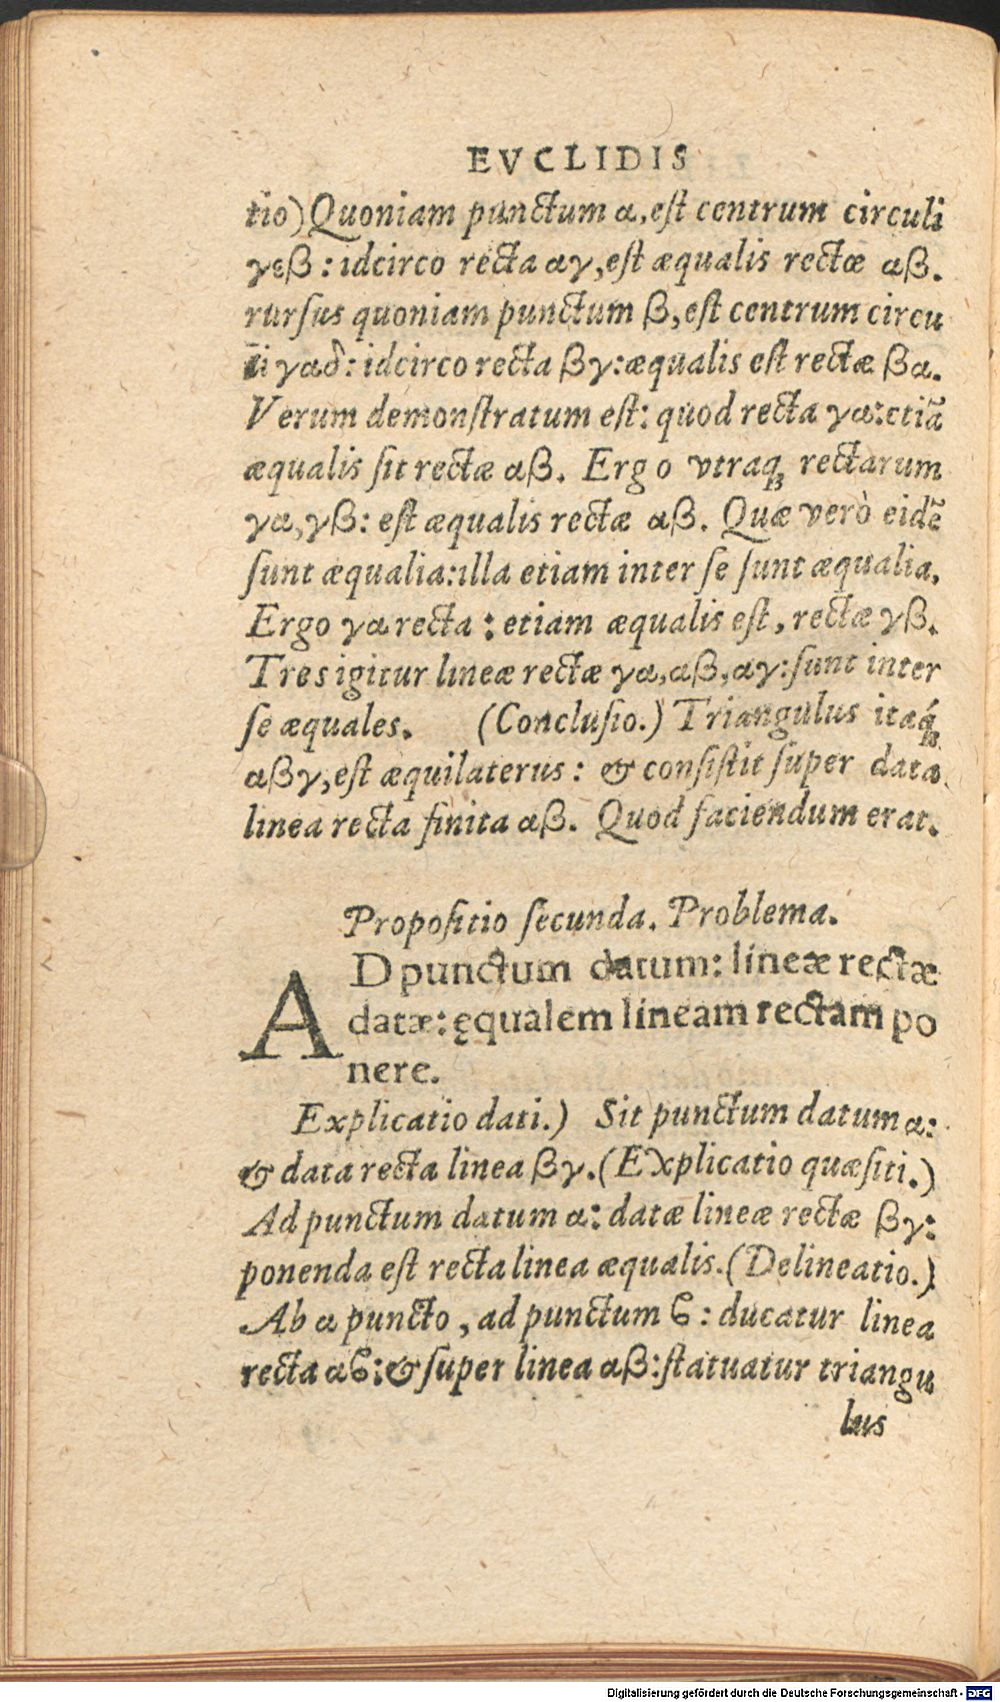 EVCLIDIS
tio) Quoniam punctum α, est centrum circuli
γεβ: idcirco recta αγ, est æqualis rectæ αβ.
rursus quoniam punctum β, est centrum circu
li γαδ: idcirco recta βγ: æqualis est rectæ βα.
Verum demonstratum est: quod recta γα: etiã
æqualis sit rectæ αβ. Ergo vtraqꝫ rectarum
γα, γβ: est æqualis rectæ αβ. Quæ verò eidẽ
sunt æqualia: illa etiam inter se sunt æqualia.
Ergo γα recta: etiam æqualis est, rectæ γβ.
Tres igitur lineæ rectæ γα, αβ, αγ: sunt inter
se æquales. (Conclusio.) Triangulus itaq́ꝫ
αβγ, est æquilaterus: & consistit super data
linea recta finita αβ. Quod faciendum erat.
Propositio secunda. Problema.
AD punctum datum: lineæ rectæ
datæ: ęqualem lineam rectam po
nere.
Explicatio dati.) Sit punctum datum α:
& data recta linea βγ. (Explicatio quæsiti.)
Ad punctum datum α: datæ lineæ rectæ βγ:
ponenda est recta linea æqualis. (Delineatio.)
Ab α puncto, ad punctum ϐ: ducatur linea
recta αϐ: & super linea αβ: statuatur triangu
lus
Digitalisierung gefördert durch die Deutsche Forschungsgemeinschaft - DFG